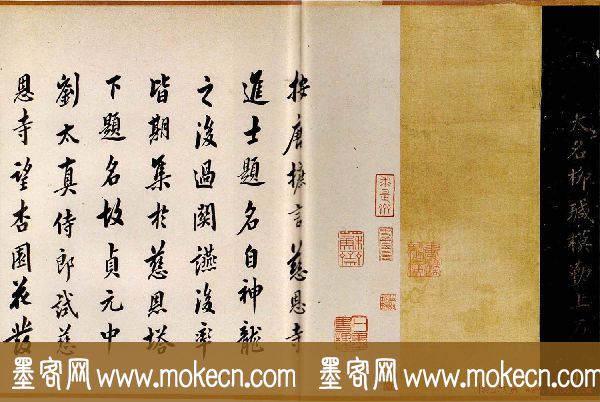 大名柳瑊模勒上
按唐摭言慈恩寺
進士題名自神龍
之後過關讌後率
皆期集於慈恩塔
下題名故貞元中
劉太真侍郎試慈
恩寺望杏園花發
墨客网 www.mokecn.com 墨客网 www.mokecn.com